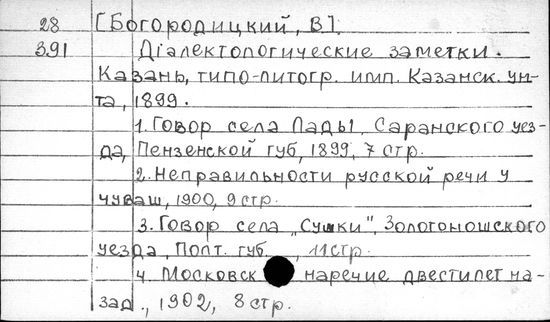 28 [Богородицкий, В].
391 Діалектологические заметки.
Казань, типо-литогр. имп. Казанск. ун-
та, 1899.
1. Говор села Лады, Саранского уез-
да, Пензенской губ, 1899, 7 стр.
2. Неправильности русской речи у
чуваш, 1900, 9 стр.
3. Говор села „Сушки", Золотоношского
уезда, Полт. губ , 11 стр.
4. Московск наречие двести лет на-
зад., 1902, 8 стр.